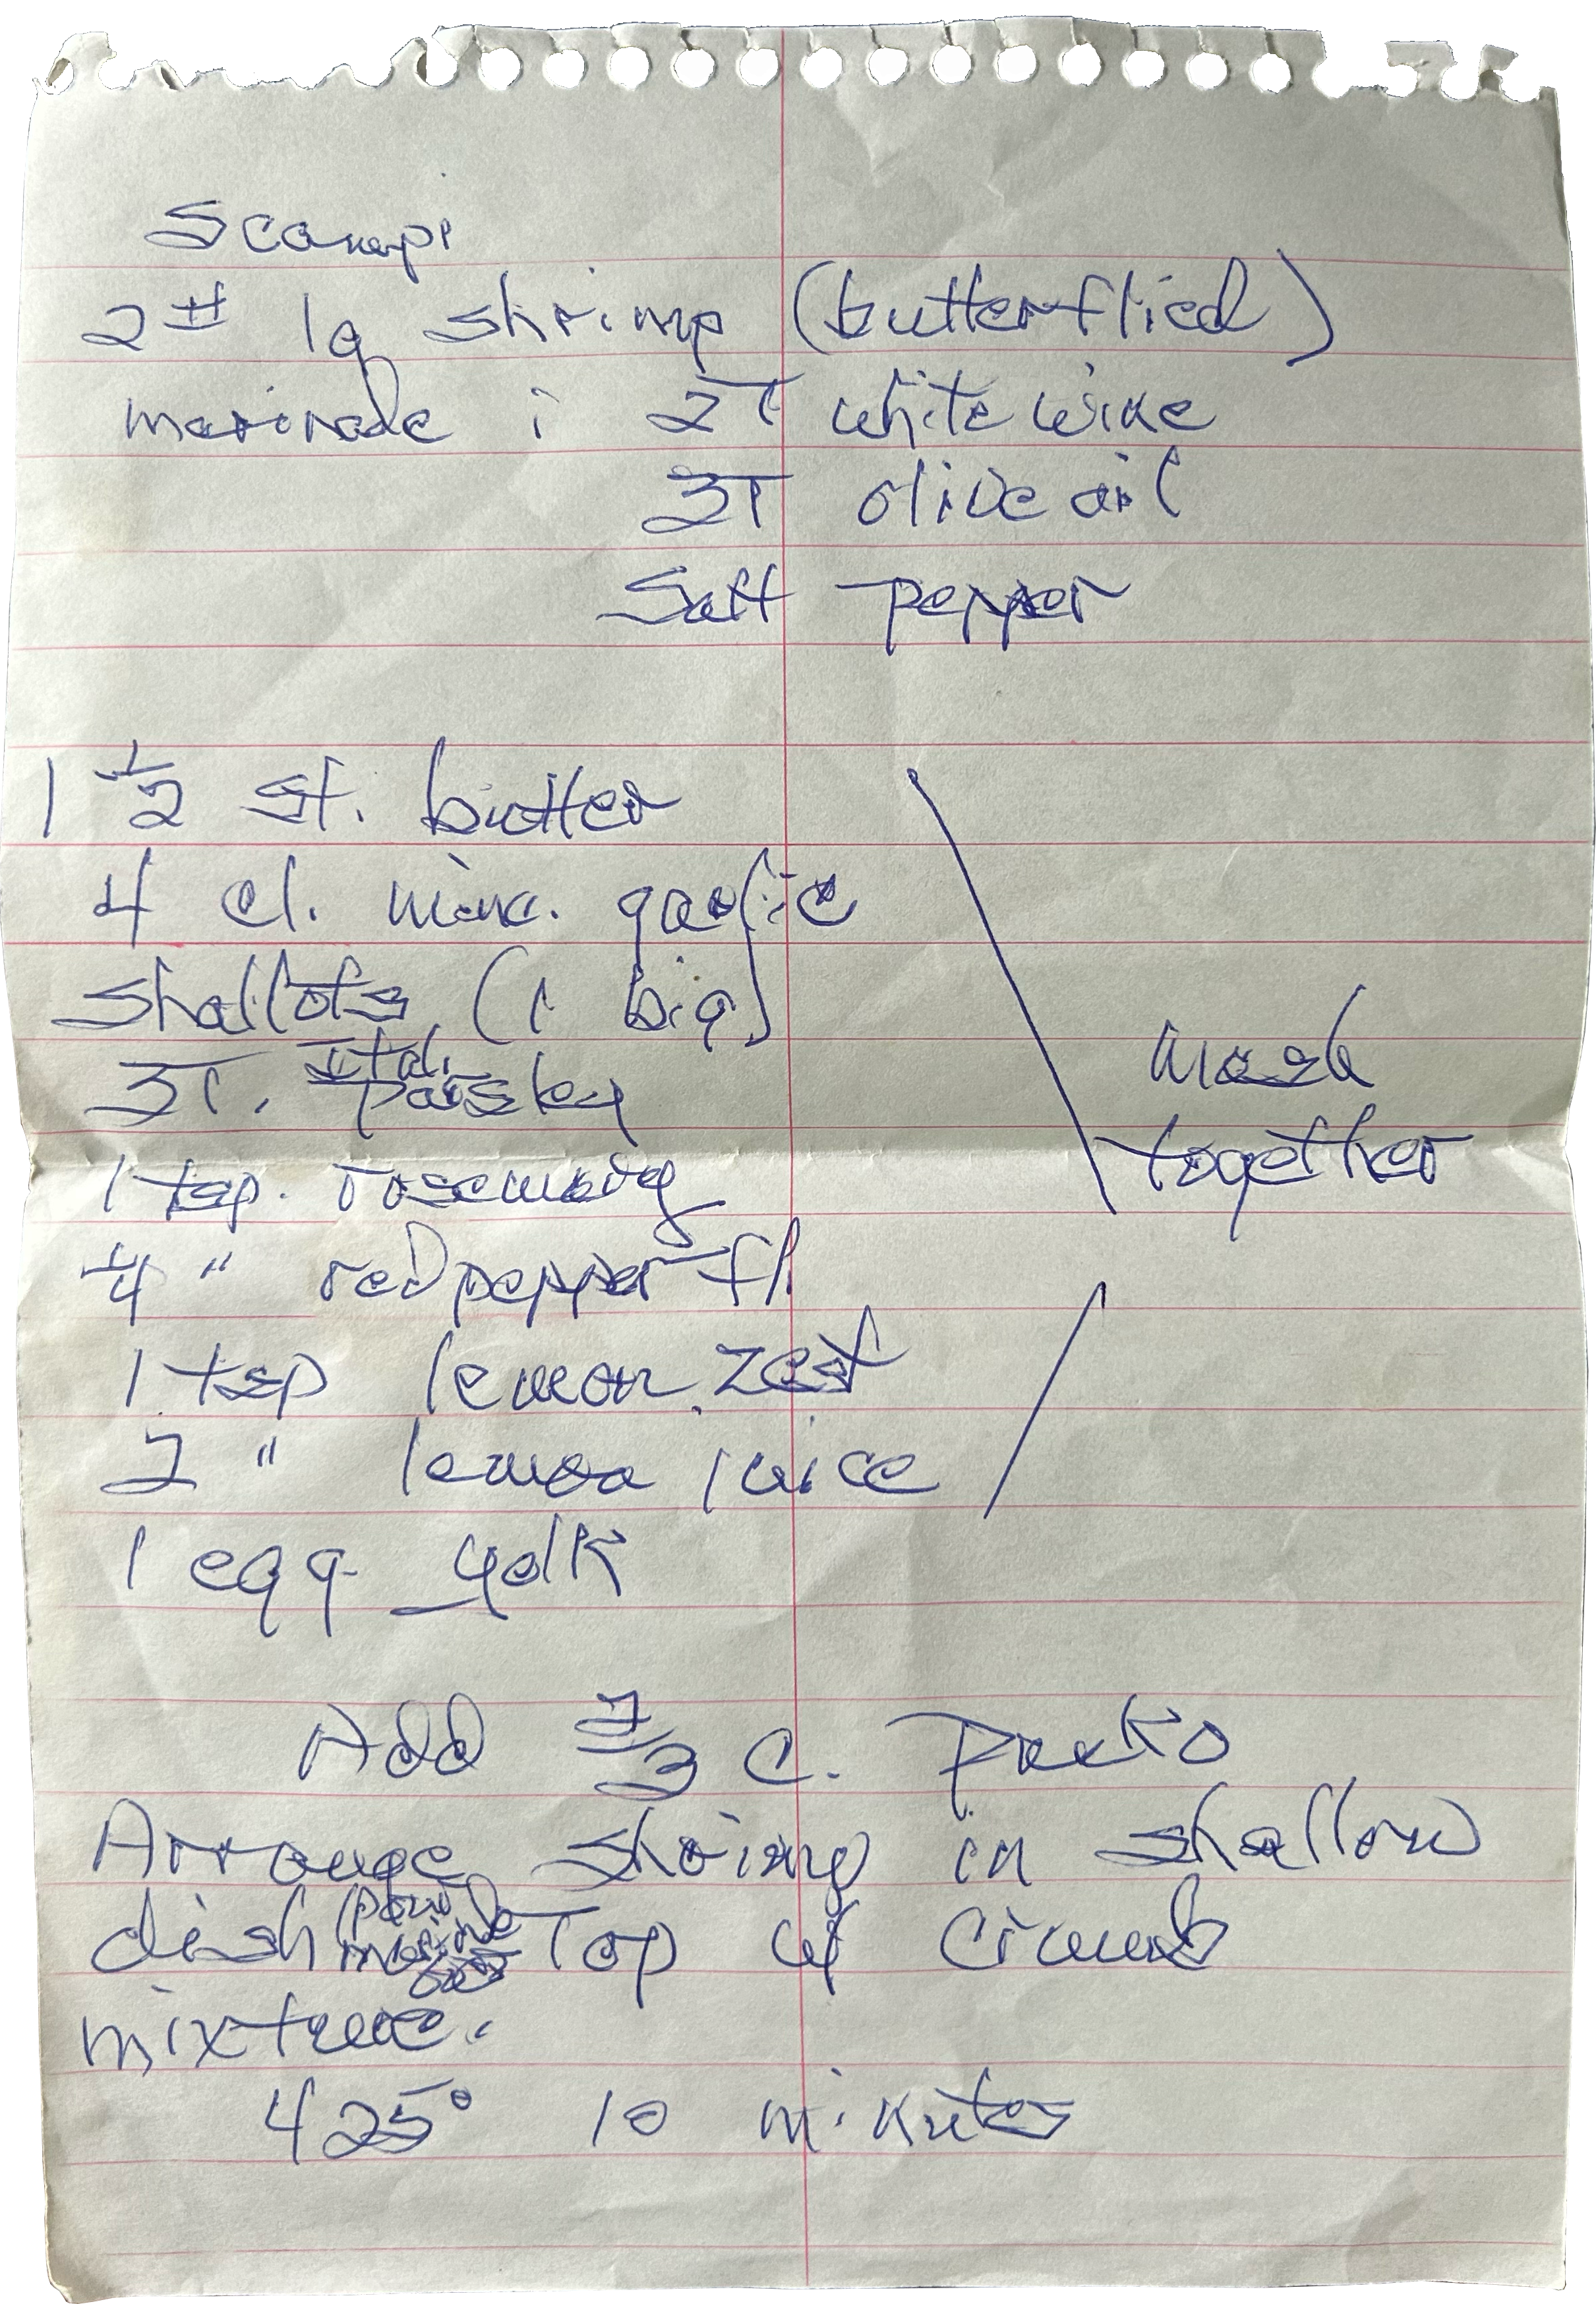 Scampi
2# lg shrimp (butterflied)
marinade : 2T white wine
3T olive oil
Salt pepper
1 1/2 st. butter
4 cl. minc. garlic
shallots (1 big)
3T. Ital. parsley
1 tsp. rosemary
1/4 " red pepper fl
1 tsp lemon zest
2 " lemon juice
1 egg yolk
mash
together
Add 2/3 c. panko
Arrange shrimp in shallow
dish (pour marinade Top w/ crumb
mixture.
425° 10 minutes